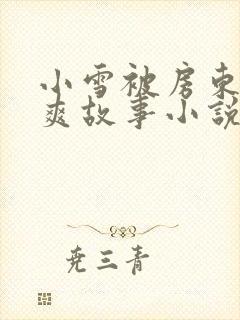 小雪被房东
爽故事小说
尧三青